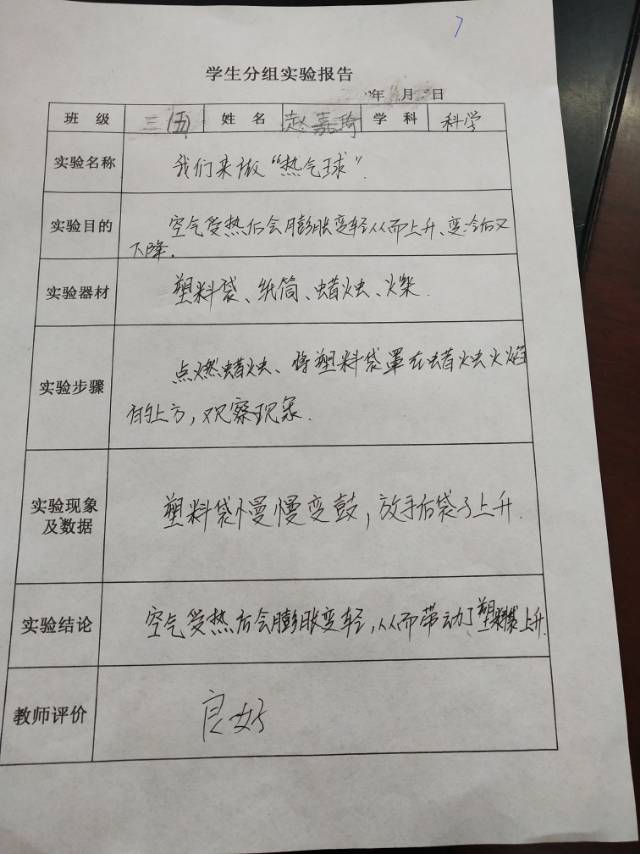 7
学生分组实验报告
年 月 日
班 级 三(五) 姓 名 赵嘉琦 学 科 科学
实验名称 我们来做“热气球”.
实验目的 空气受热后会膨胀变轻从而上升、变冷后又
下降.
实验器材 塑料袋、纸筒、蜡烛、火柴.
实验步骤 点燃蜡烛、将塑料袋罩在蜡烛火焰
的上方,观察现象.
实验现象
及数据 塑料袋慢慢变鼓,放手后袋子上升.
实验结论 空气受热后会膨胀变轻,从而带动了塑料袋上升.
教师评价 良好